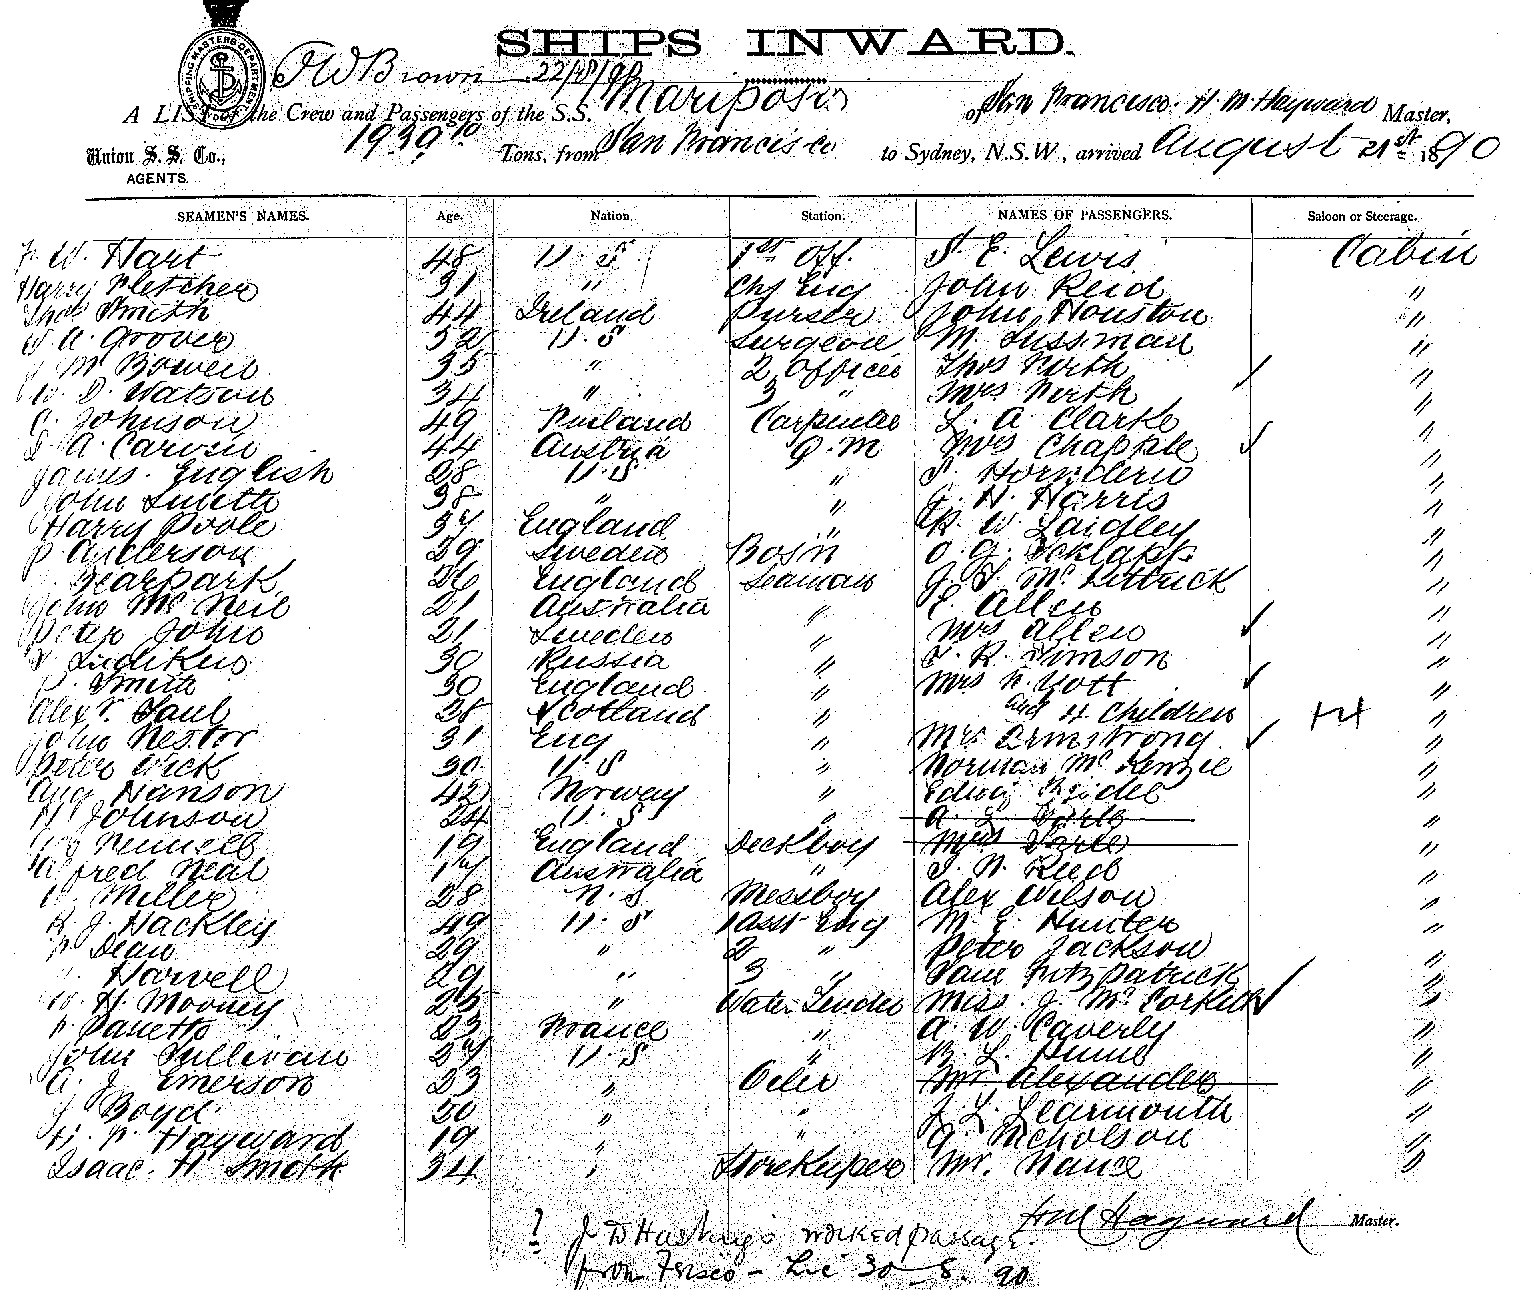 SHIPS INWARD.
SHIPPING MASTERS DEPARTMENT
J W Brown 22/8/90
A LIST of the Crew and Passengers of the S.S. Mariposa of San Francisco. H. M. Hayward Master,
Union S. S. Co., 1939 Tons, from San Francisco to Sydney, N.S.W., arrived August 21st 1890
AGENTS.
SEAMEN'S NAMES. Age. Nation. Station. NAMES OF PASSENGERS. Saloon or Steerage.
W. Hart 48 U. S 1st Off. S. E. Lewis Cabin
Harry Fletcher 31 " Chf Eng John Reid "
Thos Smith 44 Ireland Purser John Houston "
A. Grover 32 U. S Surgeon M. Sussman "
M. Bowen 35 " 2 Officer Thos North "
W. D. Watson 34 " 3 " Mrs North "
Johnson 49 Finland Carpenter L. A Clarke "
A. Carvin 44 Austria Q. M Mrs Chapple "
James. English 28 U. S " Horndern "
John Smith 38 " " H. Harris "
Harry Poole 37 England " R. W Laidley "
P. Anderson 29 Sweden Bos'n O. G.
Gearpark 26 England Seaman J. Mc Kittrick "
John Mc Neil 21 Australia " E Allen "
Peter John 21 Sweden " Mrs Allen "
30 Russia " R. Simson "
Smith 30 England " Mrs N. Yott "
Alexr. Paul 28 Scotland " and 4 children 14 "
John Nestor 31 Eng " Mrs Armstrong "
Peter Wick 30 U. S " Norman Mc Kenzie "
Aug Hanson 42 Norway " Edwin "
Johnson 24 U. S " A. L "
19 England Deckboy Mrs "
Alfred Neal 17 Australia " J. N. Reid "
W Miller 28 Messboy Alex Wilson "
R. J. Hackley 49 U. S 1 Asst Eng M. E Hunter "
Dean 29 " 2 " Peter Jackson "
Harvell 29 " 3 " Fitzpatrick "
W. H. Mooney 25 " Water Tender Miss. J. Mc "
23 France " A. W. Caverly "
John Sullivan 27 U. S " L. "
A. J. Emerson 23 " Oiler Mr. Alexander "
J Boyd 30 " " J. L. Learmouth "
H. Hayward 19 " " G. Nicholson "
Isaac. H. Smith 34 " Storekeeper Mr. Nance "
H M Hayward Master.
? J. D Hastings worked passage
from Frisco - 30 _ 8. 90